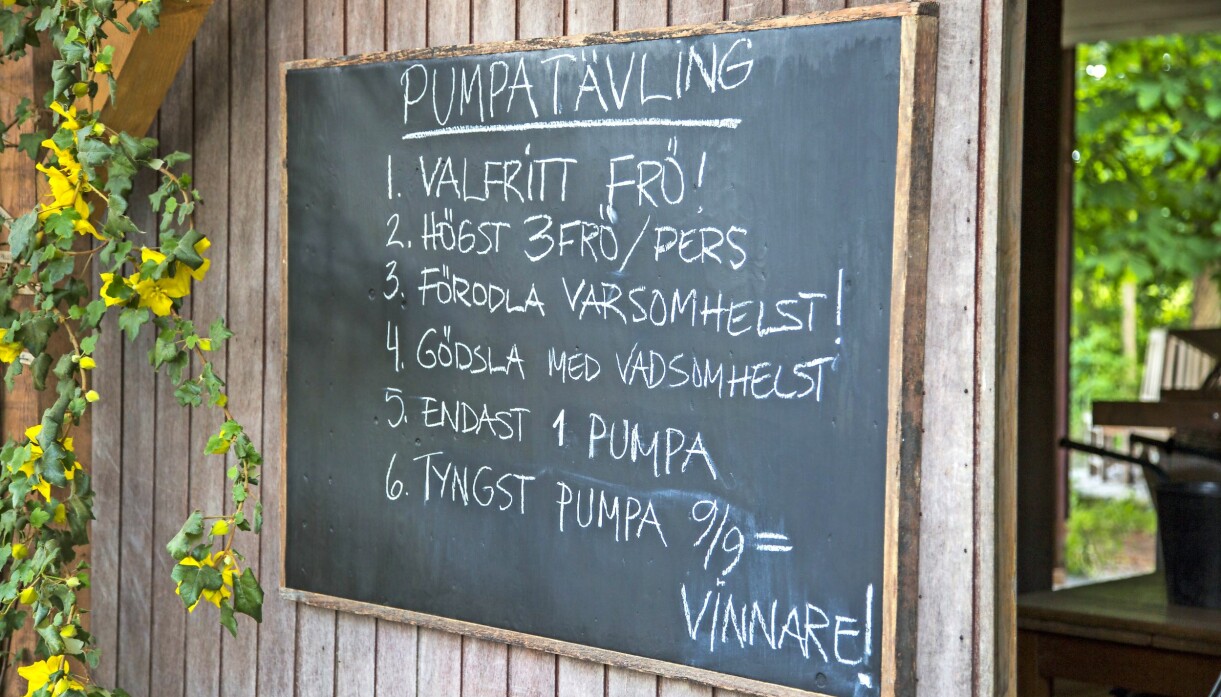 PUMPATÄVLING
1. VALFRITT FRÖ!
2. HÖGST 3 FRÖ/PERS
3. FÖRODLA VARSOMHELST!
4. GÖDSLA MED VADSOMHELST
5. ENDAST 1 PUMPA
6. TYNGST PUMPA 9/9 =
VINNARE!